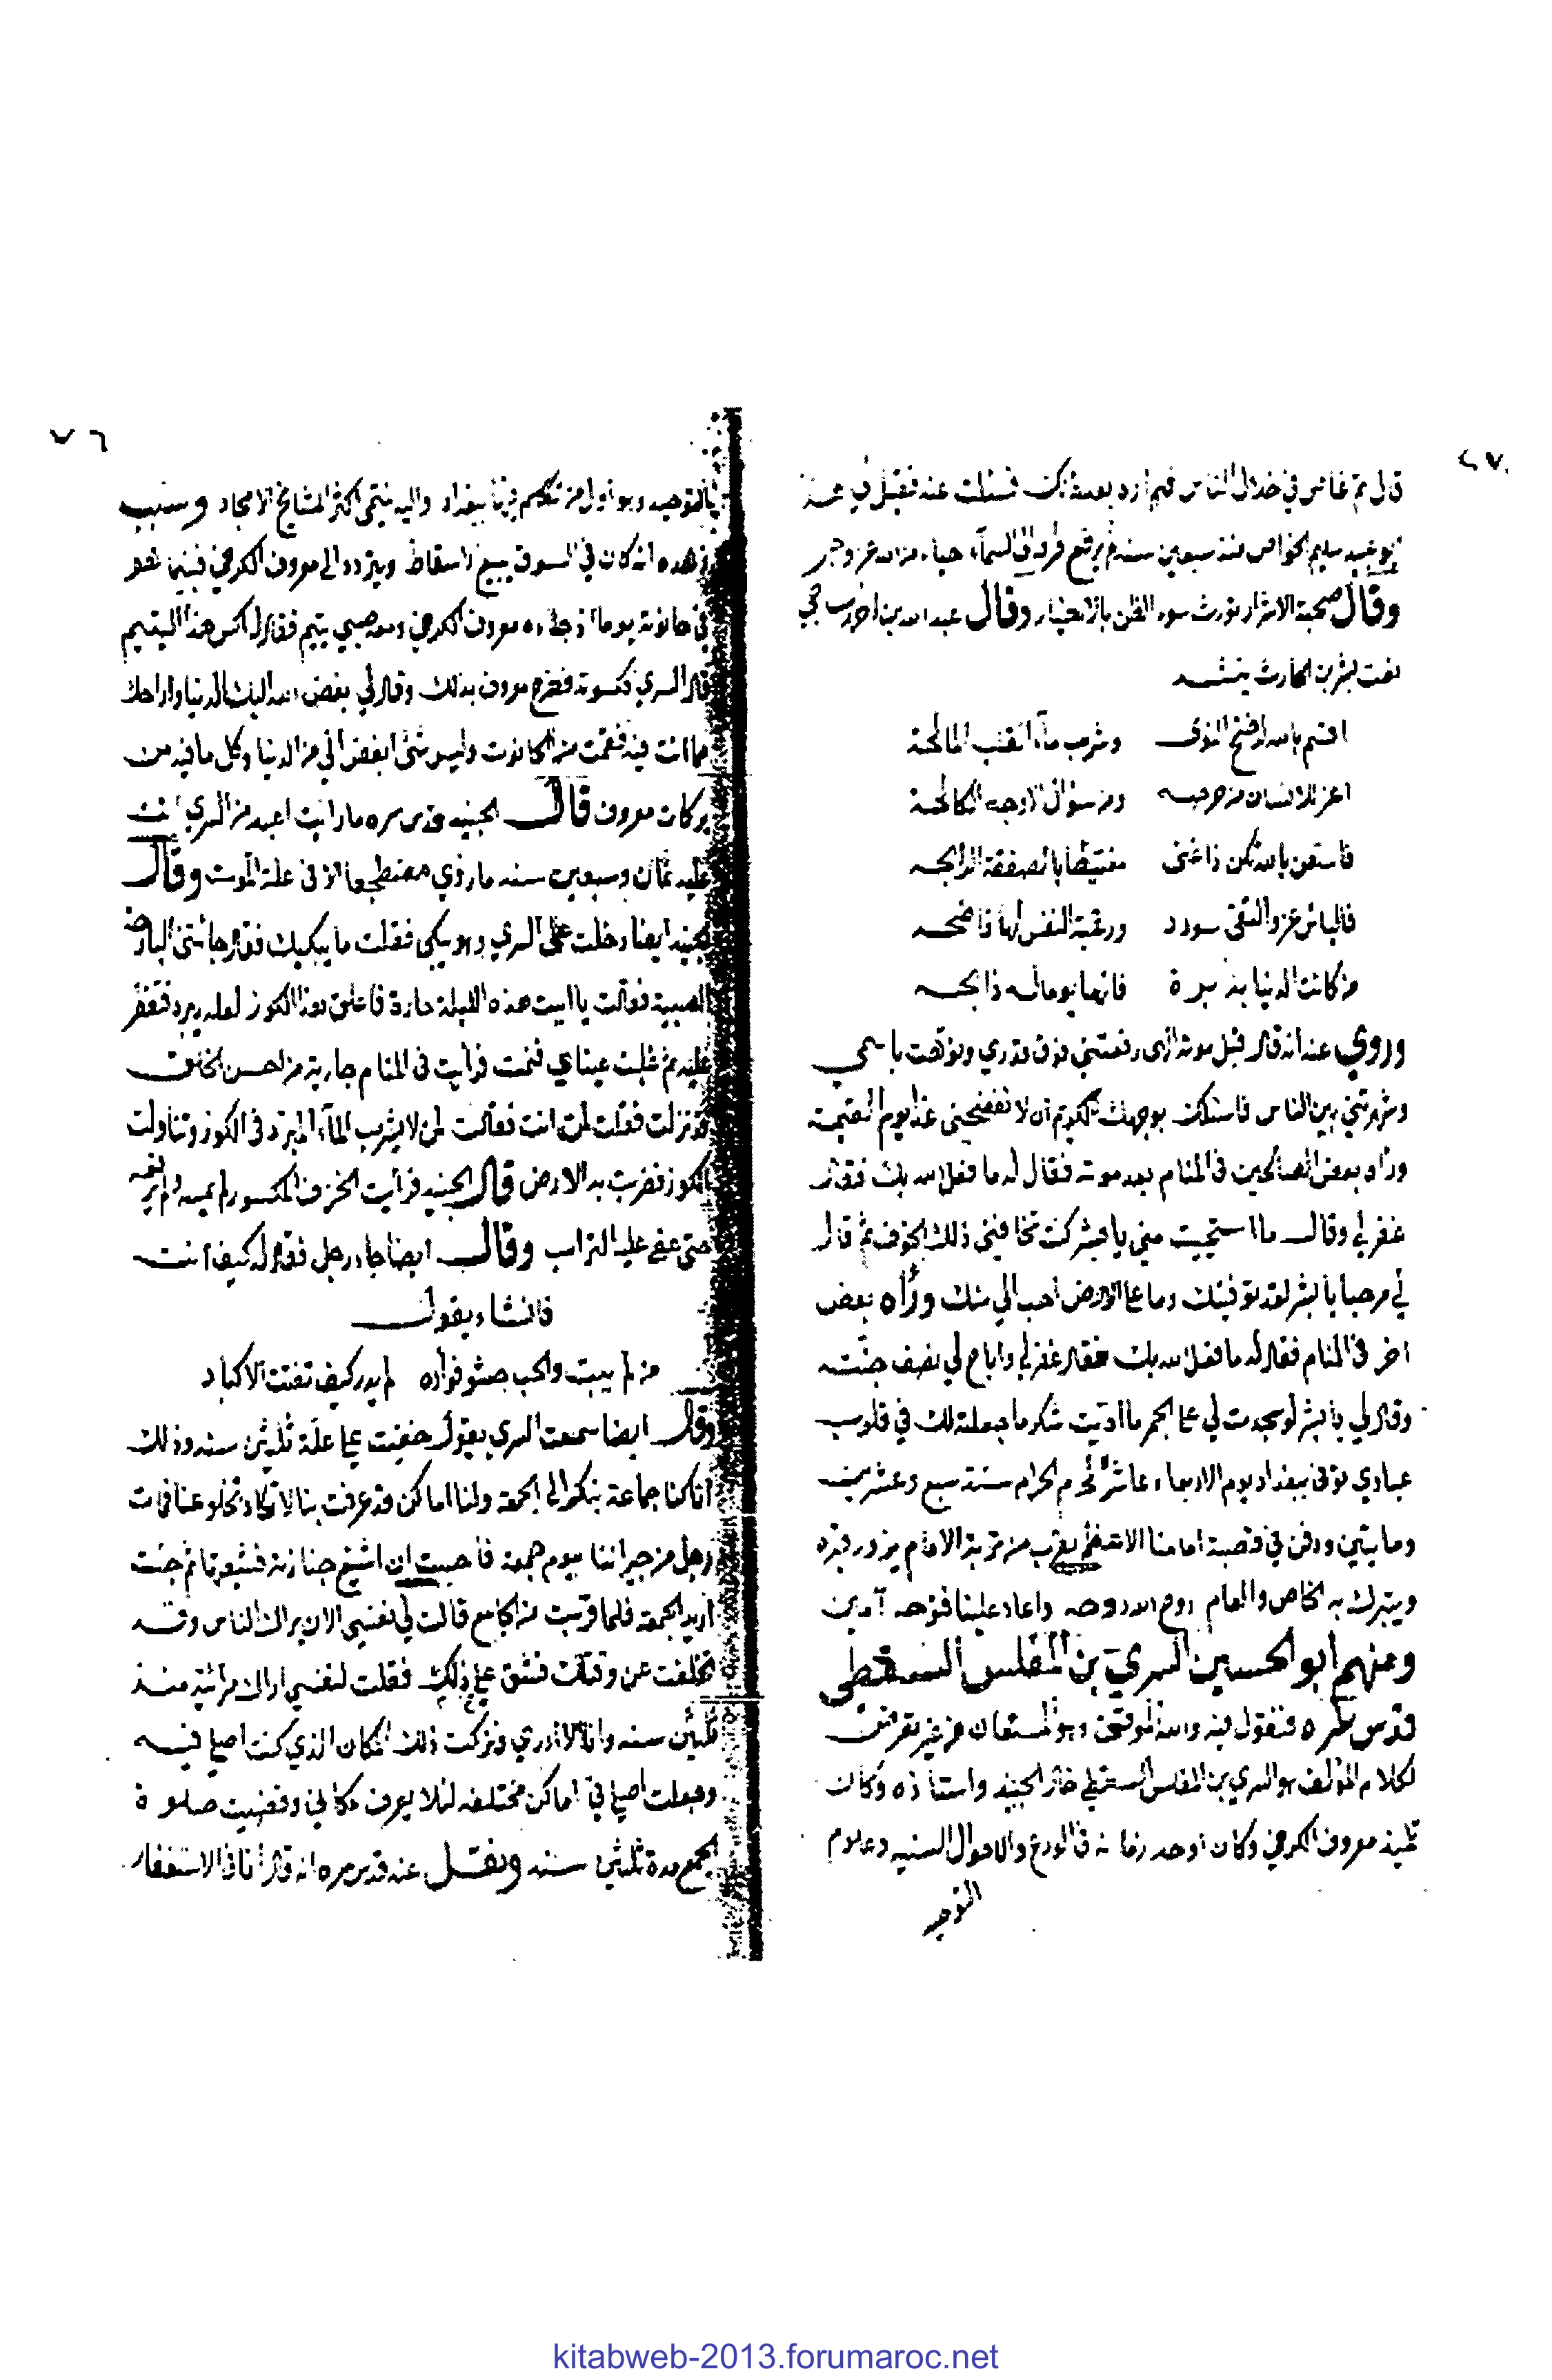 قال ثم غاص في خلال الناس فلم اره بعد ذلك فسئلت عنه فقيل لي هذا
ابو عبيد سليم الخواص منذ سبعين سنة لم يرفع طرفه الى السماء حياء من الله عز وجل
وقال صحبة الاشرار تورث سوء الظن بالاخيار وقال عبد الله بن
سمعت بشر بن الحارث ينشد
اقسم بالله لرضخ النوى وشرب ماء القلب المالحة
اعز للانسان من حرصه ومن سؤال الاوجه الكالحة
فاستغن بالله تكن ذا غنى مغتبطا بالصفقة الرابحه
فالياس عز والتقى سودد ورغبة النفس لها فاضحه
من كانت الدنيا به برة فانها يوما له ذابحه
وروي عنه انه قال قبل موته الهي رفعتني فوق قدري ونوهت باسمي
وشهرتني بين الناس فاسئلك بوجهك الكريم ان لا تفضحني غدا يوم القيمة
وراه بعض الصالحين في المنام بعد موته فقال له ما فعل الله بك فقال
غفر لي وقال ما استحييت مني يا بشر كنت تخافني ذلك الخوف ثم قال
لي مرحبا يا بشر لقد توفيتك وما على الارض احب الي منك ورأه بعض
اخر في المنام فقال له ما فعل الله بك فقال غفر لي واباح لي نصف جنته
وقال لي يا بشر لو سجدت لي على الجمر ما اديت شكر ما جعلته لك في قلوب
عبادي توفي ببغداد يوم الاربعاء عاشر المحرم الحرام سنة سبع وعشرين
ومايتين ودفن في قصبة امامنا الاعظم بقرب من تربة الامام يزور قبره
ويتبرك به الخاص والعام روح الله روحه واعاد علينا فتوحه آمين
ومنهم ابو الحسين السري بن المغلس السقطي
قدس سره فنقول فيه والله الموفق وهو المستعان من غير تعرض
لكلام المؤلف هو السري بن المغلس السقطي خال الجنيد واستاذه وكان
تلميذ معروف الكرخي وكان اوحد زمانه في الورع والاحوال السنيه وعلوم
التوحيد
٧٦
بالتوحيد وهو اول من تكلم فيها ببغداد واليه ينتمي اكثر المشايخ الامجاد وسبب
زهده انه كان في السوق يبيع الاسقاط ويتردد الى معروف الكرخي فبينما هو
في حانوته يوما اذ جاءه معروف الكرخي ومعه صبي يتيم فقال له اكس هذا اليتيم
قال السري فكسوته ففرح معروف بذلك وقال لي بغض الله اليك الدنيا واراحك
مما انت فيه فقمت من الحانوت وليس شئ ابغض الي من الدنيا وكل ما فيه من
بركات معروف قال الجنيد قدس سره ما رايت اعبد من السري اتت
عليه ثمان وسبعين سنه ما رؤي مضطجعا الا في علة الموت وقال
الجنيد ايضا دخلت على السري وهو يبكي فقلت ما يبكيك فقال جائتني البارحة
الصبية فقالت يا ابت هذه الليلة حارة فاعلق هذا الكوز لعله يبرد
عليه ثم غلبت عيناي فنمت فرأيت في المنام جارية من احسن الخلق
قد نزلت فقلت لمن انت فقالت لمن لا يشرب الماء المبرد في الكوز وتناولت
الكوز فضربت به الارض قال الجنيد فرأيت الخزف المكسور لم يمسه ولم يرفعه
حتى عفى عليه التراب وقال ايضا جاء رجل فقال له كيف انت
فانشاء يقول
من لم يبت والحب حشو فؤاده لم يدر كيف تفتت الاكباد
وقال ايضا سمعت السري يقول خفيت علي علة ثلثين سنه وذلك
انا كنا جماعة نبكر الى الجمعة ولنا اماكن قد عرفت بنا لا تكاد تخلو عنا فمات
رجل من جيراننا يوم جمعة فاحببت ان اشيع جنازته فشيعتها ثم جئت
اريد الجمعة فلما قربت من الجامع قالت لي نفسي الان يراك الناس وقد
تخلفت عن وقتك فشق علي ذلك فقلت لنفسي اراك مرائية منذ
ثلثين سنه وانا لا ادري وتركت ذلك المكان الذي كنت اصلي فيه
وجعلت اصلي في اماكن مختلفه لئلا يعرف مكاني وقضيت صلوة
الجمع مدة ثلثين سنه ونقل عنه قدس سره انه قال انا في الاستغفار
kitabweb-2013.forumaroc.net